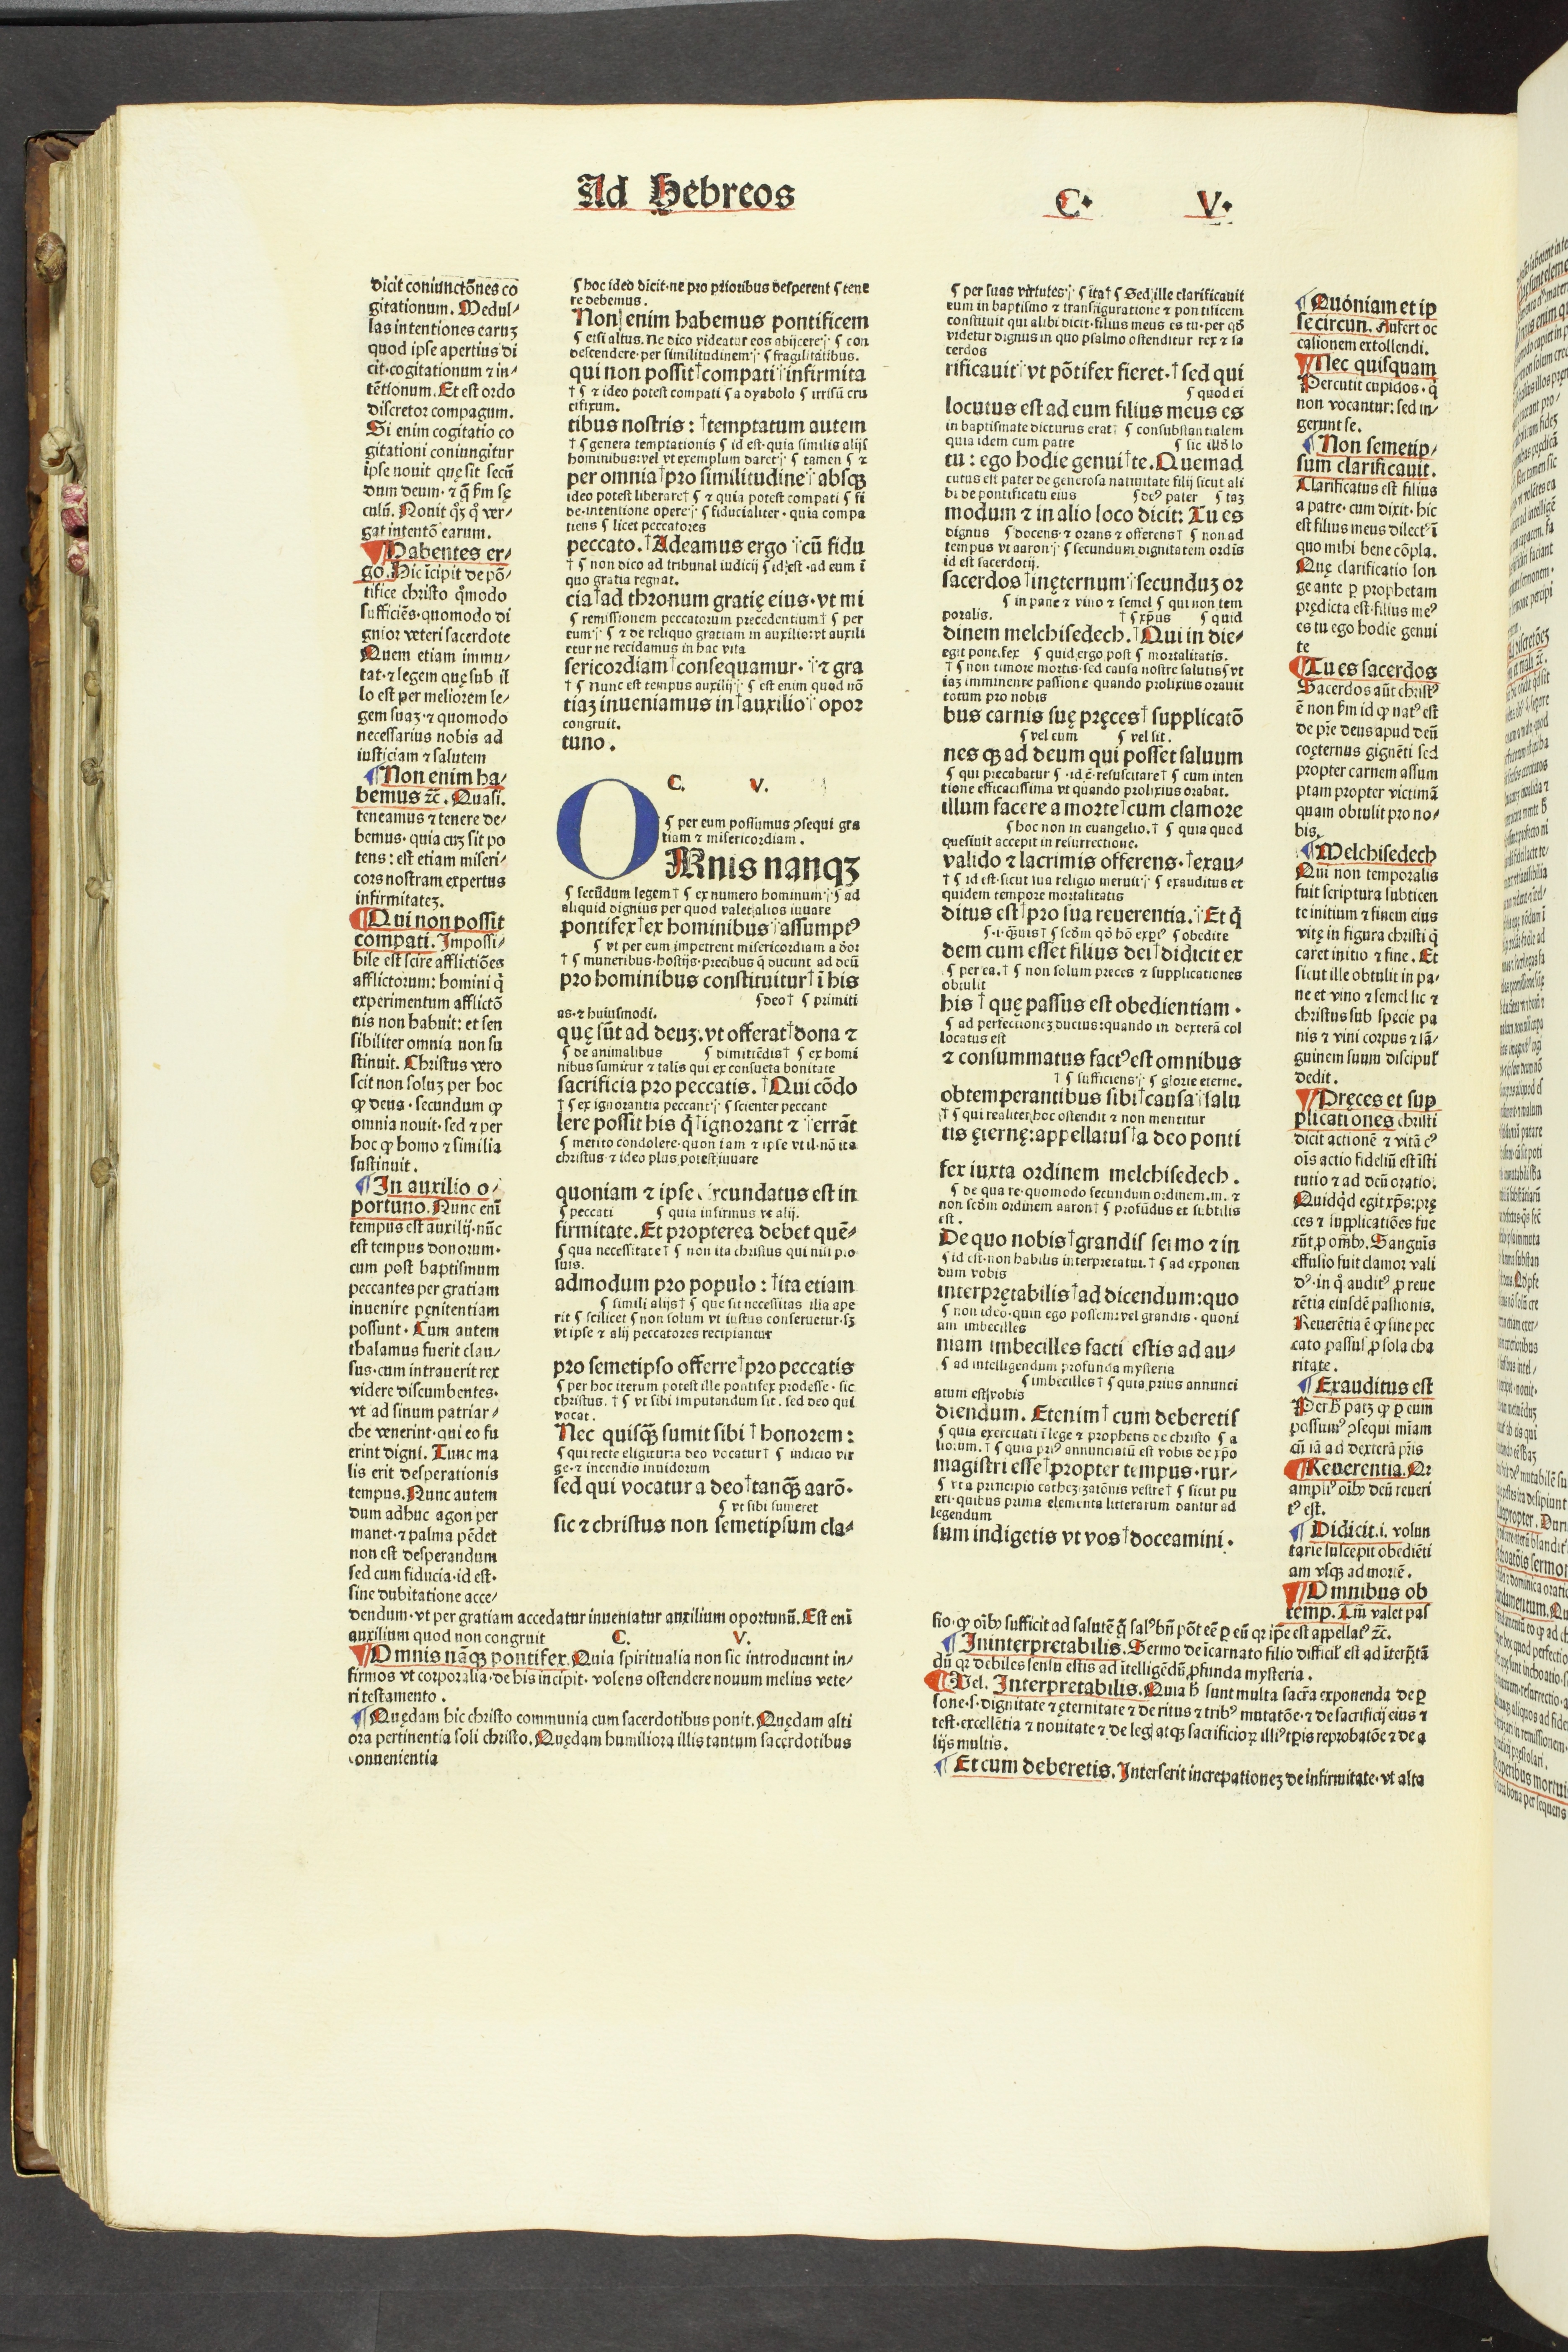 Ad Hebreos
C. V.
dicit coniunctões co
gitationum. Medul-
las intentiones earuꝫ
quod ipse apertius di
cit·cogitationum ⁊ in-
tẽtionum. Et est ordo
discretor compagum.
Si enim cogitatio co
gitationi coniungitur
ipse nouit quę sit secũ
dum deum·⁊ q̃ ẜm sę
culũ. Nouit qͦꝫ qͦ ver-
gat intentõ earum.
Habentes er-
go. Hic ĩcipit de põ-
tifice christo qͦmodo
sufficiẽs·quomodo di
gnior veteri sacerdote
Quem etiam immu-
tat·⁊ legem quę sub il
lo est per meliorem le-
gem suaꝫ·⁊ quomodo
necessarius nobis ad
iusticiam ⁊ salutem
Non enim ha-
bemus ⁊c̃. Quasi.
teneamus ⁊ tenere de-
bemus·quia cuꝫ sit po
tens: est etiam miseri-
cors nostram expertus
infirmitateꝫ.
Qui non possit
compati. Impossi-
bile est scire afflictiões
afflictorum: homini q̇
experimentum afflictõ
nis non habuit: et sen
sibiliter omnia non su
stinuit. Christus vero
scit non soluꝫ per hoc
ꝙ deus·secundum ꝙ
omnia nouit·sed ⁊ per
hoc ꝙ homo ⁊ similia
sustinuit.
In auxilio o-
portuno. Nunc enĩ
tempus est auxilij·nũc
est tempus donorum·
cum post baptismum
peccantes per gratiam
inuenire pęnitentiam
possunt. Cum autem
thalamus fuerit clau-
sus·cum intrauerit rex
videre discumbentes·
vt ad sinum patriar-
che venerint·qui eo fu
erint digni. Tunc ma
lis erit desperationis
tempus. Nunc autem
dum adhuc agon per
manet·⁊ palma pẽdet
non est desperandum
sed cum fiducia·id est·
sine dubitatione acce-
dendum·vt per gratiam accedatur inueniatur auxilium oportunũ. Est enĩ
auxilium quod non congruit C. V.
Omnis nãqꝫ pontifex. Quia spiritualia non sic introducunt in-
firmos vt corporalia·de his incipit·volens ostendere nouum melius vete-
ri testamento.
Quędam hic christo communia cum sacerdotibus ponit. Quędam alti
ora pertinentia soli christo. Quędam humiliora illis tantum sacerdotibus
conuenientia
¶ hoc ideo dicit·ne pro prioribus desperent ¶ tene
re debemus.
Non enim habemus pontificem
¶ etsi altus. Ne dico videatur eos abijcere ¶ con
descendere·per similitudinem ¶ fragilitatibus.
qui non possit†compati infirmita
† ¶ ⁊ ideo potest compati ¶ a dyabolo ¶ irrisũ cru
cifixum.
tibus nostris: †temptatum autem
† ¶ genera temptationis ¶ id est·quia similis alijs
hominibus:vel vt exemplum daret ¶ tamen ¶ ⁊
per omnia†pro similitudine absqꝫ
ideo potest liberare† ¶ ⁊ quia potest compati ¶ fi
de·intentione opere ¶ fiducialiter·quia compa
tiens ¶ licet peccatores
peccato.†Adeamus ergo cũ fidu
† ¶ non dico ad tribunal iudicij ¶ id est·ad eum ĩ
quo gratia regnat.
cia†ad thronum gratię eius·vt mi
¶ remissionem peccatorum precedentium† ¶ per
eum ¶ ⁊ de reliquo gratiam in auxilio:vt auxili
etur ne recidamus in hac vita
sericordiam†consequamur· ⁊ gra
† ¶ Nunc est tempus auxilij ¶ est enim quod nõ
tiaꝫ inueniamus in†auxilio opor
congruit.
tuno.
C. V.
¶ per eum possumus ꝯsequi gra
tiam ⁊ misericordiam.
OMnis nanqꝫ
¶ secũdum legem† ¶ ex numero hominum ¶ ad
aliquid dignius per quod valet alios iuuare
pontifex†ex hominibus assumptꝰ
¶ vt per eum impetrent misericordiam a deo:
† ¶ muneribus·hostijs·precibus q̇ ducunt ad deũ
pro hominibus constituitur†ĩ his
¶ deo† ¶ primiti
as·⁊ huiusmodi.
quę sũt ad deuꝫ:vt offerat†dona ⁊
¶ de animalibus ¶ dimittẽdis† ¶ ex homi
nibus sumitur ⁊ talis qui ex consueta bonitate
sacrificia pro peccatis. †Qui cõdo
† ¶ ex ignorantia peccant ¶ scienter peccant
lere possit his q̇†ignorant ⁊ errãt
¶ merito condolere·quoniam ⁊ ipse vt il·nõ ita
christus·⁊ ideo plus potest iuuare
quoniam ⁊ ipse circundatus est in
¶ peccati ¶ quia infirmus vt alij.
firmitate. Et propterea debet quẽ-
¶ qua necessitate† ¶ non ita christus qui nisi pro
suis.
admodum pro populo: †ita etiam
¶ simili alijs† ¶ que sit necessitas illa ape
rit ¶ scilicet ¶ non solum vt iustus conseruetur·sꝫ
vt ipse ⁊ alij peccatores recipiantur
pro semetipso offerre†pro peccatis
¶ per hoc iterum potest ille pontifex prodesse·sic
christus. † ¶ vt sibi imputandum sit·sed deo qui
vocat.
Nec quisq̃ sumit sibi†honorem:
¶ qui recte eligitur:a deo vocatur† ¶ indicio vir
ge·⁊ incendio inuidorum
sed qui vocatur a deo†tanq̃ aarõ·
¶ vt sibi sumeret
sic ⁊ christus non semetipsum cla-
¶ per suas virtutes ¶ ita† ¶ Sed ille clarificauit
eum in baptismo ⁊ transfiguratione ⁊ pontificem
constituit qui alibi dicit·filius meus es tu·per qd̃
videtur dignus in quo psalmo ostenditur rex ⁊ sa
cerdos
rificauit vt põtifex fieret·†sed qui
¶ quod ei
locutus est ad eum filius meus es
in baptismate dicturus erat† ¶ consubstantialem
quia idem cum patre ¶ sic illo lo
tu: ego hodie genui†te. Quemad
cutus est pater de generosa natiuitate filij sicut ali
bi de pontificatu eius ¶ deꝰ pater ¶ taꝫ
modum ⁊ in alio loco dicit: Tu es
dignus ¶ docens·⁊ orans ⁊ offerens† ¶ non ad
tempus vt aaron ¶ secundum dignitatem ordis
id est sacerdotij.
sacerdos†inęternum secunduꝫ or
¶ in pane ⁊ vino ⁊ semel ¶ qui non tem
poralis. † ¶ xp̃us ¶ quid
dinem melchisedech.†Qui in die-
egit pontifex ¶ quid ergo post ¶ mortalitatis.
† ¶ non timore mortis·sed causa nostre salutis ¶ vt
iaꝫ imminente passione·quando prolixius orauit
totum pro nobis
bus carnis suę pręces†supplicatõ
¶ vel cum ¶ vel sit.
nes qꝫ ad deum qui posset saluum
¶ qui precabatur ¶ ·id ẽ·resuscitare† ¶ cum inten
tione efficacissima vt quando prolixius orabat.
illum facere a morte†cum clamore
¶ hoc non in euangelio.† ¶ quia quod
quesiuit accepit in resurrectione.
valido ⁊ lacrimis offerens·†exau-
† ¶ id est·sicut sua religio meruit ¶ exauditus et
quidem tempore mortalitatis
ditus est†pro sua reuerentia. Et q̇
¶·i·q̃uis† ¶ scdm qd̃ hõ expꝫ ¶ obedire
dem cum esset filius dei†didicit ex
¶ per ea.† ¶ non solum preces ⁊ supplicationes
obtulit
his†quę passus est obedientiam·
¶ ad perfectioneꝫ ductus:quando in dexterã col
locatus est
⁊ consummatus factꝰ est omnibus
† ¶ sufficiens ¶ glorie eterne.
obtemperantibus sibi†causa salu
† ¶ qui realiter hoc ostendit ⁊ non mentitur
tis ęternę:appellatus†a deo ponti
fex iuxta ordinem melchisedech.
¶ de qua re·quomodo secundum ordinem·m. ⁊
non scdm ordinem aaron† ¶ profũdus et subtilis
est.
De quo nobis†grandis sermo ⁊ in
¶ id est·non habilis interpretatui.† ¶ ad exponen
dum vobis
interpretabilis†ad dicendum:quo
¶ non ideo·quin ego possem:vel grandis·quoni
am imbecilles
niam imbecilles facti estis ad au-
¶ ad intelligendum profunda mysteria
¶ imbecilles† ¶ quia prius annunci
atum est vobis
diendum. Etenim†cum deberetis
¶ quia exercitati ĩ lege ⁊ prophetis de christo ¶ a
liorum.† ¶ quia priꝰ annunciatũ est vobis de xp̃o
magistri esse†propter tempus·rur-
¶ vt a principio cathezizatõnis vestre† ¶ sicut pu
eri·quibus prima elementa litterarum dantur ad
legendum
sum indigetis vt vos†doceamini.
Quoniam et ip
se circun. Aufert oc
casionem extollendi.
Nec quisquam
Percutit cupidos·q̇
non vocantur: sed in-
gerunt se.
Non semetip-
sum clarificauit.
Clarificatus est filius
a patre·cum dixit·hic
est filius meus dilectꝰ ĩ
quo mihi bene cõpla.
Quę clarificatio lon
ge ante ꝑ prophetam
prędicta est·filius meꝰ
es tu ego hodie genui
te
Tu es sacerdos
Sacerdos aũt christꝰ
ẽ non ẜm id ꝙ natꝰ est
de pr̃e deus apud deũ
coęternus gignẽti sed
propter carnem assum
ptam propter victimã
quam obtulit pro no-
bis.
Melchisedech
Qui non temporalis
fuit scriptura subticen
te initium ⁊ finem eius
vitę in figura christi q̇
caret initio ⁊ fine. Et
sicut ille obtulit in pa-
ne et vino ⁊ semel sic ⁊
christus sub specie pa
nis ⁊ vini corpus ⁊ sã-
guinem suum discipul̃
dedit.
Pręces et sup
plicationes christi
dicit actionẽ ⁊ vitã cꝰ
oĩs actio fideliũ est ĩsti
tutio ⁊ ad deũ oratio.
Quidq̇d egit xp̃s:prę
ces ⁊ supplicatiões fue
rũt ꝓ omĩbꝰ. Sanguĩs
effusio fuit clamor vali
dꝰ·in q̇ auditꝰ ꝓ reue
rẽtia eiusdẽ passionis.
Reuerẽtia ẽ ꝙ sine pec
cato passus ꝓ sola cha
ritate.
Exauditus est
Per h̃ patꝫ ꝙ ꝑ eum
possumꝰ ꝯsequi mĩam
cũ iã ad dexterã pr̃is
Reuerentia. Qr
ampliꝰ oĩbꝰ deũ reueri
tꝰ est.
Didicit.i. volun
tarie suscepit obediẽti
am vsqꝫ ad mortẽ.
Omnibus ob
temp. Tm̃ valet pas
sio·ꝙ oĩbꝰ sufficit ad salutẽ q̃ salꝰ bñ põt eẽ ꝑ eũ qꝛ ip̃e est appellatꝰ ⁊c̃.
Ininterpretabilis. Sermo de ĩcarnato filio difficil̃ est ad ĩterp̃tã
dũ qꝛ debiles sensu estis ad ĩtelligẽdũ ꝓfunda mysteria.
Vel. Interpretabilis. Quia h̃ sunt multa sacr̃a exponenda de ꝑ
sone·s·dignitate ⁊ ęternitate ⁊ de ritus ⁊ tribꝰ mutatõe·⁊ de sacrificij eius ⁊
test·excellẽtia ⁊ nouitate ⁊ de leg atqꝫ sacrificioꝝ illiꝰ tp̃is reprobatõe ⁊ de a
lijs multis.
Et cum deberetis. Interserit increpationeꝫ de infirmitate·vt alta